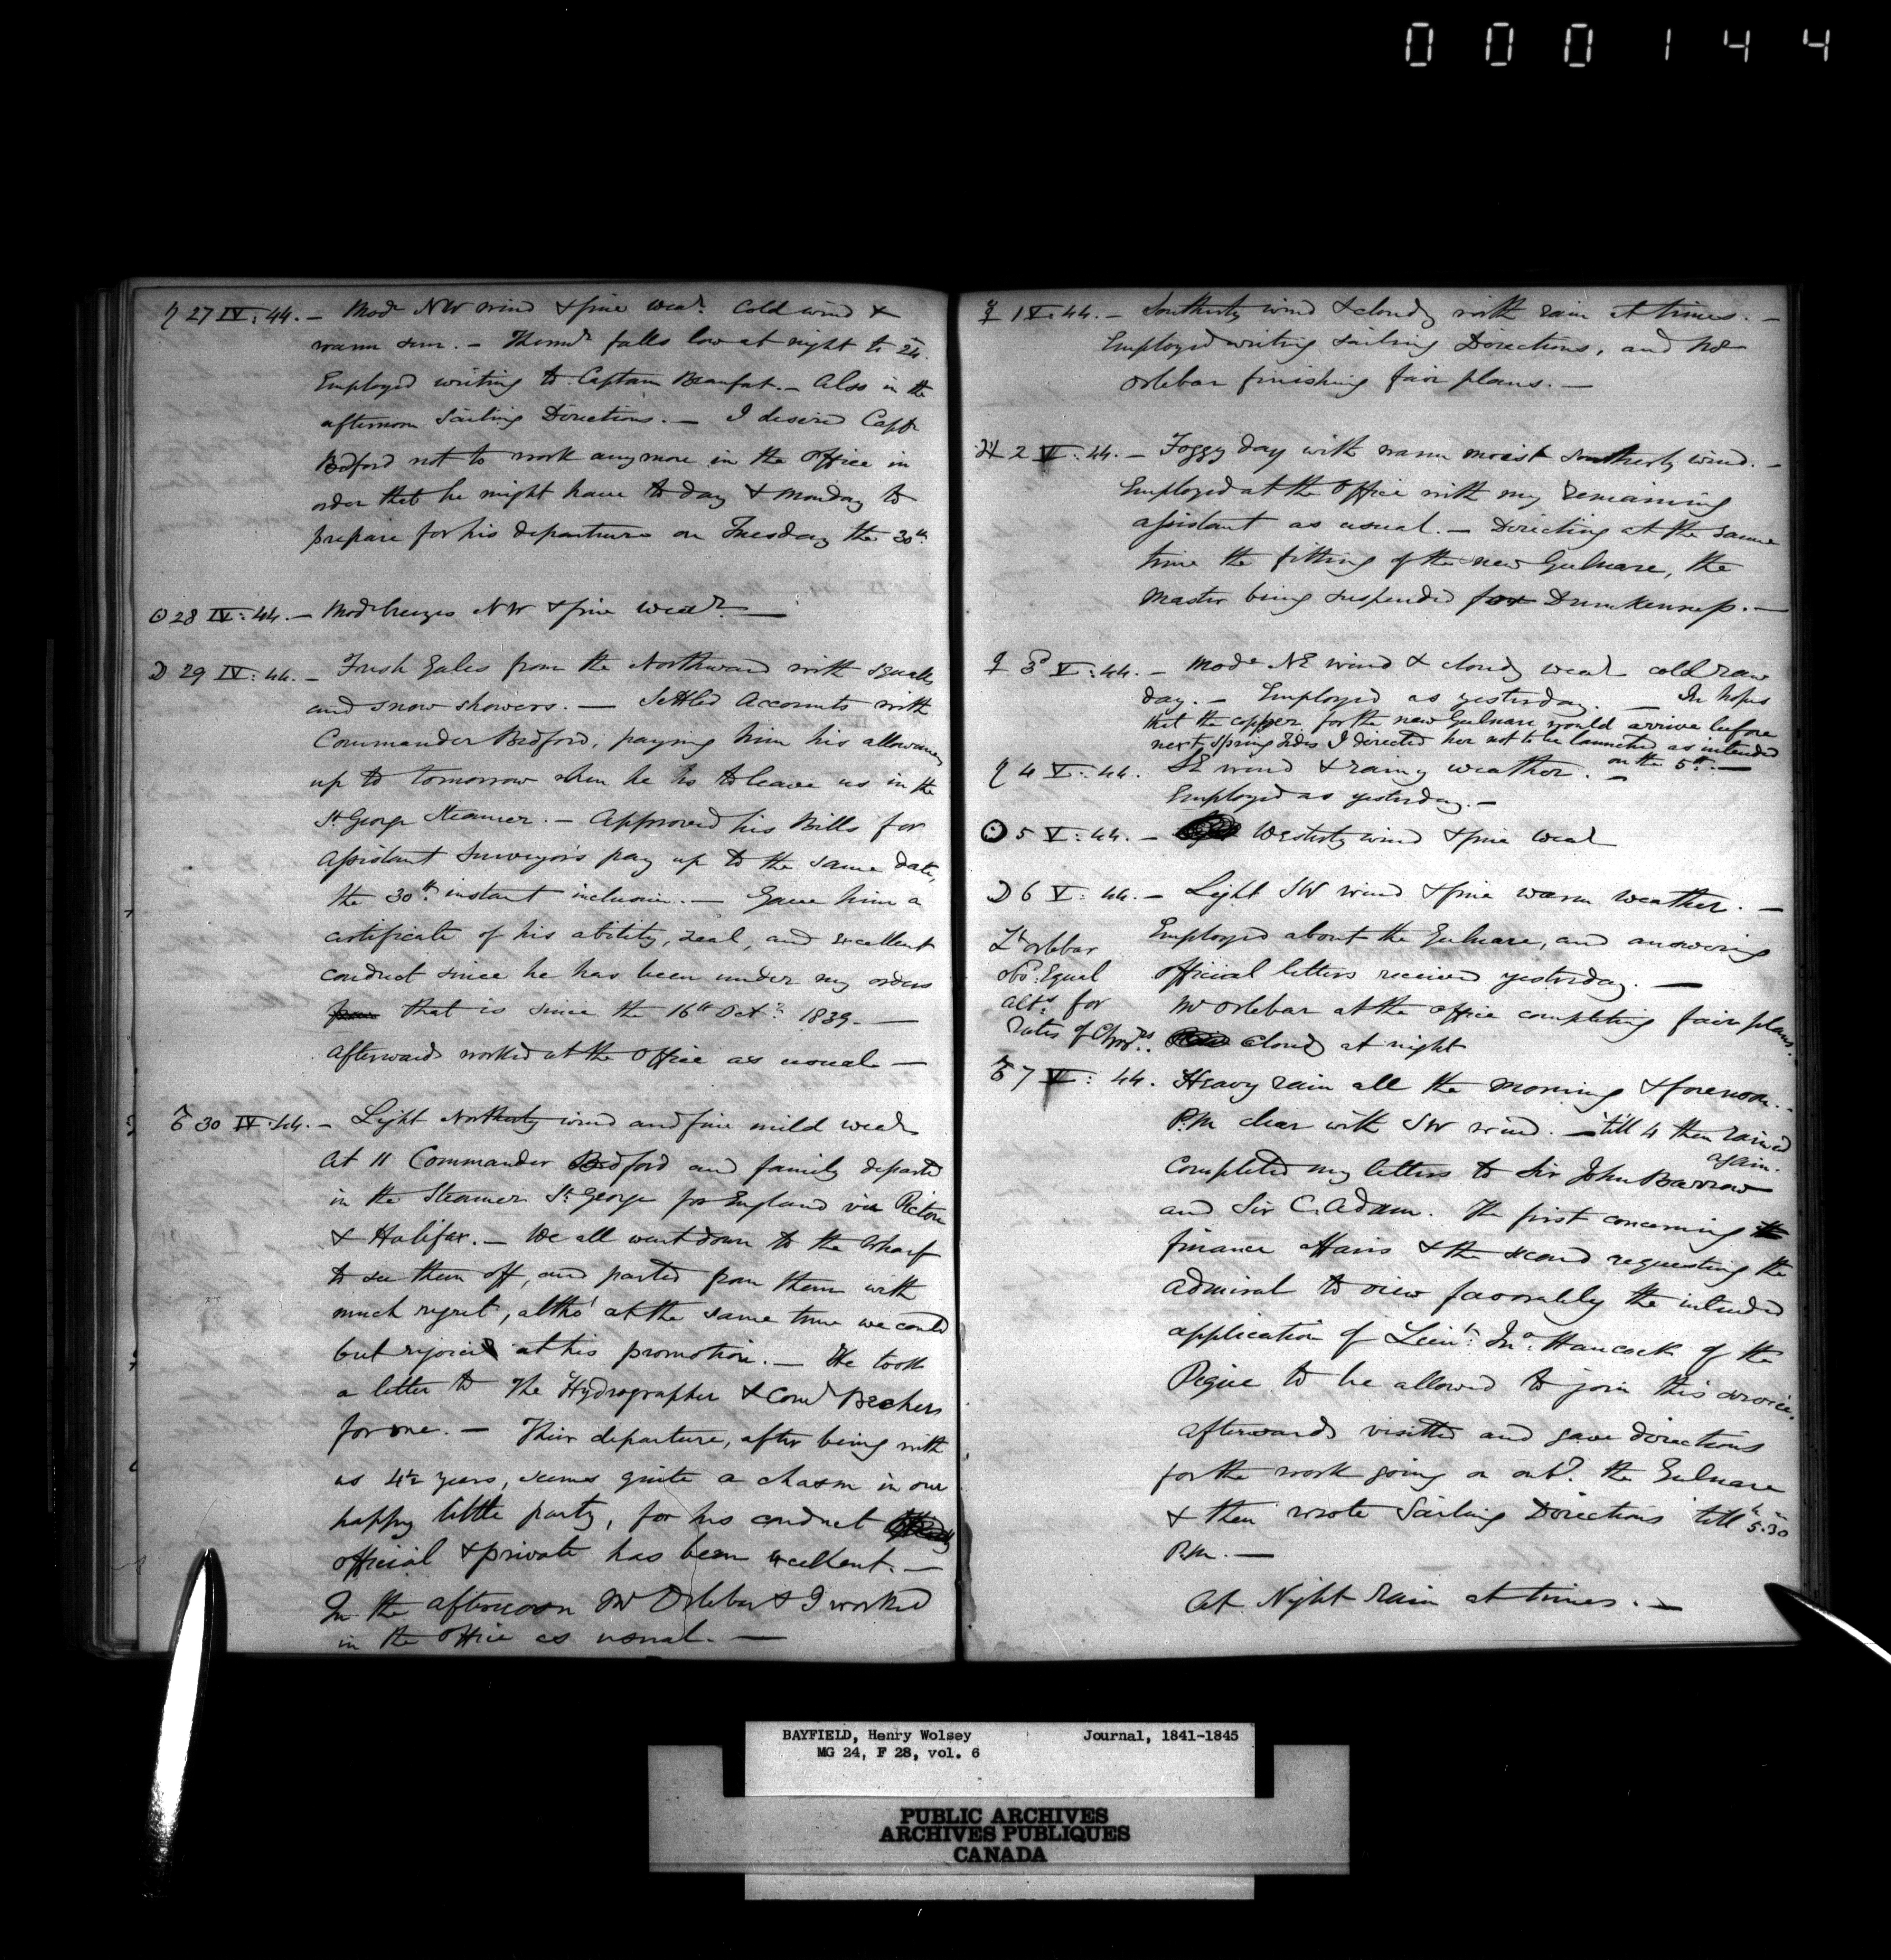 000144
♄ 27 IV: 44. – Modr NW wind & fine wear. Cold wind &
warm sun. – Thermr falls low at night to 24.
Employed writing to Captain Beaufort. – Also in the
afternoon Sailing Directions. – I desired Captn
Bedford not to work anymore in the Office in
order that he might have to day & Monday to
prepare for his departure on Tuesday the 30th.
☉ 28 IV: 44. – Modr breezes NW & fine wear. –
☽ 29 IV: 44. – Fresh Gales from the Northward with squalls
and snow showers. – Settled Accounts with
Commander Bedford, paying him his allowances
up to tomorrow when he is to leave us in the
St George Steamer. – Approved his Bills for
Assistant Surveyors pay up to the same date,
the 30th. instant inclusive. – Gave him a
certificate of his ability, zeal, and excellent
conduct since he has been under my orders
from that is since the 16th Octr. 1839. –
Afterwards worked at the Office as usual –
♂ 30 IV: 44. – Light Northerly wind and fine mild wear
At 11 Commander Bedford and family departed
in the Steamer St. George for England via Pictou
& Halifax. – We all went down to the Wharf
to see them off, and parted from them with
much regret, altho' at the same time we could
but rejoice at his promotion. – He took
a letter to The Hydrographer & Comr Bechers
for me. – Their departure, after being with
us 4½ years, seems quite a chasm in our
happy little party, for his conduct
official & private has been excellent. –
In the afternoon Mr Orlebar & I worked
in the Office as usual. –
☿ 1 V: 44. – Southerly wind & cloudy with rain at times. –
Employed writing Sailing Directions, and Mr
Orlebar finishing fair plans. –
♃ 2 V: 44. – Foggy day with warm moist Southerly wind. –
Employed at the Office with my remaining
assistant as usual. – Directing at the same
time the fitting of the new Gulnare, the
Master being suspended for Drunkenness. –
♀ 3 V: 44. – Modr NE wind & cloudy wear cold raw
day. – Employed as yesterday. – In hopes
that the copper for the new Gulnare would arrive before
next Spring tides I directed her not to be launched as intended
on the 5th. –
♄ 4 V: 44. SE wind & rainy weather. –
Employed as yesterday. –
☉ 5 V: 44. – Westerly wind & fine wear
☽ 6 V: 44. – Light SW wind & fine warm weather. –
Employed about the Gulnare, and answering
official letters received yesterday. –
Mr Orlebar at the office completing fair plans.
cloudy at night
Lt Orlebar
obs. Equal
alts. for
rates of Chronrs.
♂ 7 V: 44. Heavy rain all the morning & forenoon. –
P.M. clear with SW wind. – 'till 4 then rained
again.
Completed my letters to Sir John Barrow
and Sir C. Adam. The first concerning the
finance affairs & the second requesting the
Admiral to view favorably the intended
application of Lieut. Jno. Hancock of the
Pique to be allowed to join this service.
Afterwards visitted and gave directions
for the work going on abt. the Gulnare
& then wrote Sailing Directions 'till 5h.30m
P.M. –
At Night Rain at times. –
BAYFIELD, Henry Wolsey Journal, 1841-1845
MG 24, F 28, vol. 6
PUBLIC ARCHIVES
ARCHIVES PUBLIQUES
CANADA